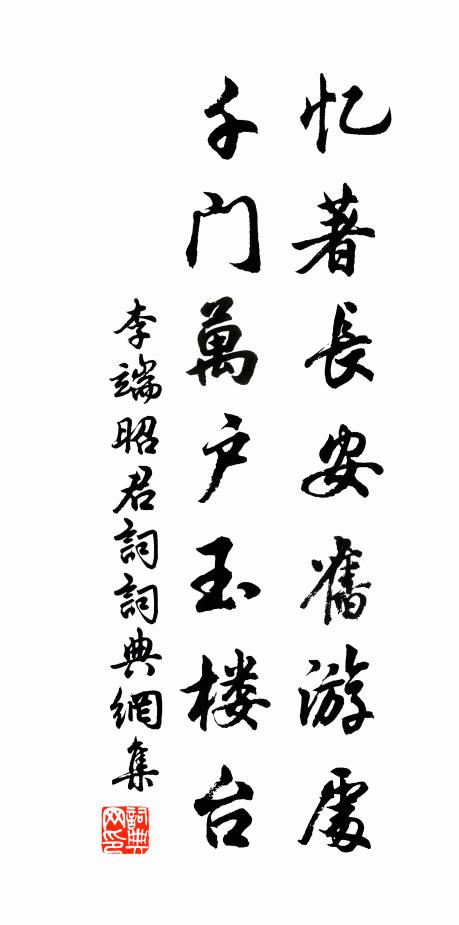 忆著長安舊游處
千門萬户玉楼台
李端昭君詞詞典網集
詞典网印